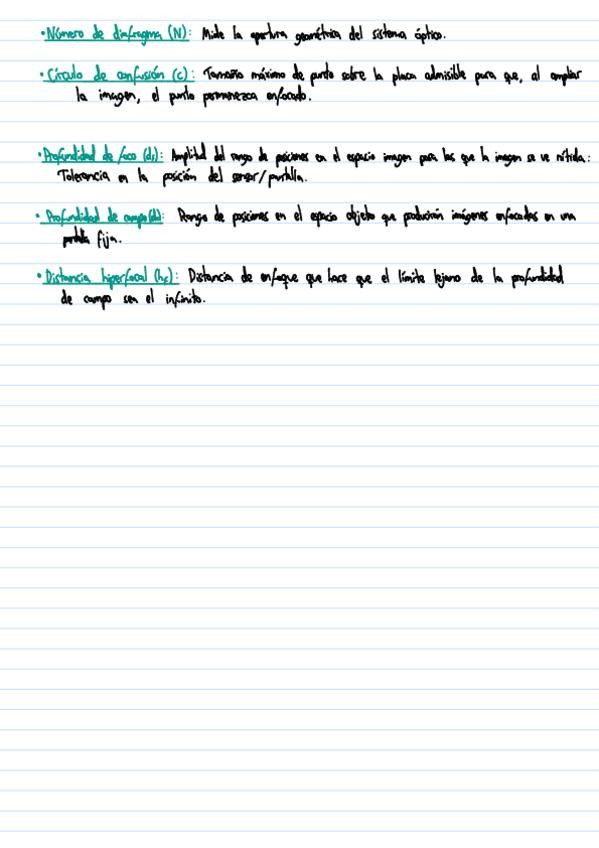 • Número de diafragma (N): Mide la apertura geométrica del sistema óptico.
• Círculo de confusión (c): Tamaño máximo de punto sobre la placa admisible para que, al ampliar
la imagen, el punto permanezca enfocado.
• Profundidad de foco (df): Amplitud del rango de posiciones en el espacio imagen para las que la imagen se ve nítida:
Tolerancia en la posición del sensor/pantalla.
• Profundidad de campo: Rango de posiciones en el espacio objeto que producirán imágenes enfocadas en una
pantalla fija.
• Distancia hiperfocal (hf): Distancia de enfoque que hace que el límite lejano de la profundidad
de campo sea el infinito.